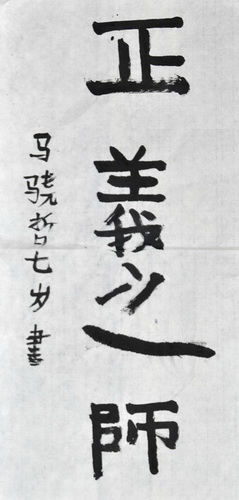 正義之師
马骁哲七岁書